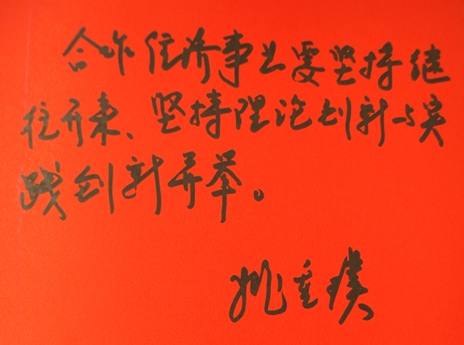 合作经济事业要坚持继
往开来、坚持理论创新与实
践创新并举。